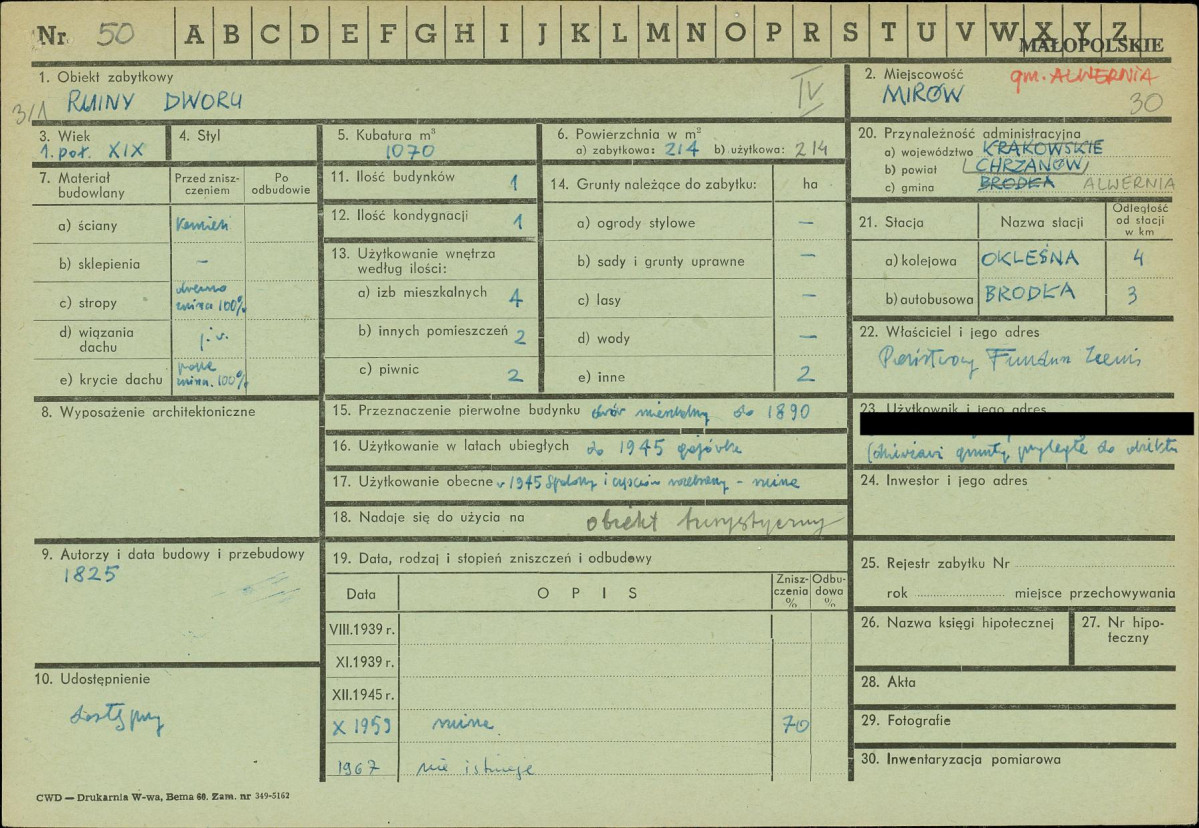 Nr 50 A B C D E F G H I J K L M N O P R S T U V W X Y Z
MAŁOPOLSKIE
1. Obiekt zabytkowy
RUINY DWORU
IV
3/1
2. Miejscowość gm. ALWERNIA
MIRÓW
30
3. Wiek
1. poł. XIX
4. Styl
5. Kubatura m³
1070
6. Powierzchnia w m²
a) zabytkowa: 214 b) użytkowa: 214
7. Materiał budowlany
Przed zniszczeniem
Po odbudowie
a) ściany kamień
b) sklepienia —
c) stropy drewno
ruina 100%
d) wiązania dachu j.w.
e) krycie dachu papa
ruina 100%
8. Wyposażenie architektoniczne
9. Autorzy i data budowy i przebudowy
1825
10. Udostępnienie
dostępny
11. Ilość budynków 1
12. Ilość kondygnacji 1
13. Użytkowanie wnętrza według ilości:
a) izb mieszkalnych 4
b) innych pomieszczeń 2
c) piwnic 2
14. Grunty należące do zabytku: ha
a) ogrody stylowe —
b) sady i grunty uprawne —
c) lasy —
d) wody —
e) inne 2
15. Przeznaczenie pierwotne budynku dwór mieszkalny do 1890
16. Użytkowanie w latach ubiegłych do 1945 gajówka
17. Użytkowanie obecne w 1945 spalony i częściowo rozebrany - ruina
18. Nadaje się do użycia na obiekt turystyczny
19. Data, rodzaj i stopień zniszczeń i odbudowy
Data OPIS Zniszczenia % Odbudowa %
VIII.1939 r.
XI.1939 r.
XII.1945 r.
X 1959 ruina 70
1967 nie istnieje
20. Przynależność administracyjna
a) województwo KRAKOWSKIE
b) powiat CHRZANÓW
c) gmina BRODŁA ALWERNIA
21. Stacja Nazwa stacji Odległość od stacji w km
a) kolejowa OKLEŚNA 4
b) autobusowa BRODŁA 3
22. Właściciel i jego adres
Państwowy Fundusz Ziemi
23. Użytkownik i jego adres
(dzierżawi grunty przyległe do obiektu
24. Inwestor i jego adres
25. Rejestr zabytku Nr
rok miejsce przechowywania
26. Nazwa księgi hipotecznej
27. Nr hipoteczny
28. Akta
29. Fotografie
30. Inwentaryzacja pomiarowa
CWD — Drukarnia W-wa, Bema 60. Zam. nr 349-5162